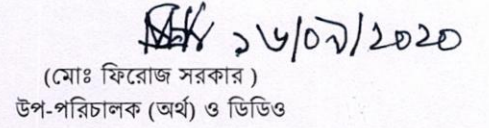 ১৬/০৯/2020
(মোঃ ফিরোজ সরকার )
উপ-পরিচালক (অর্থ) ও ডিডিও